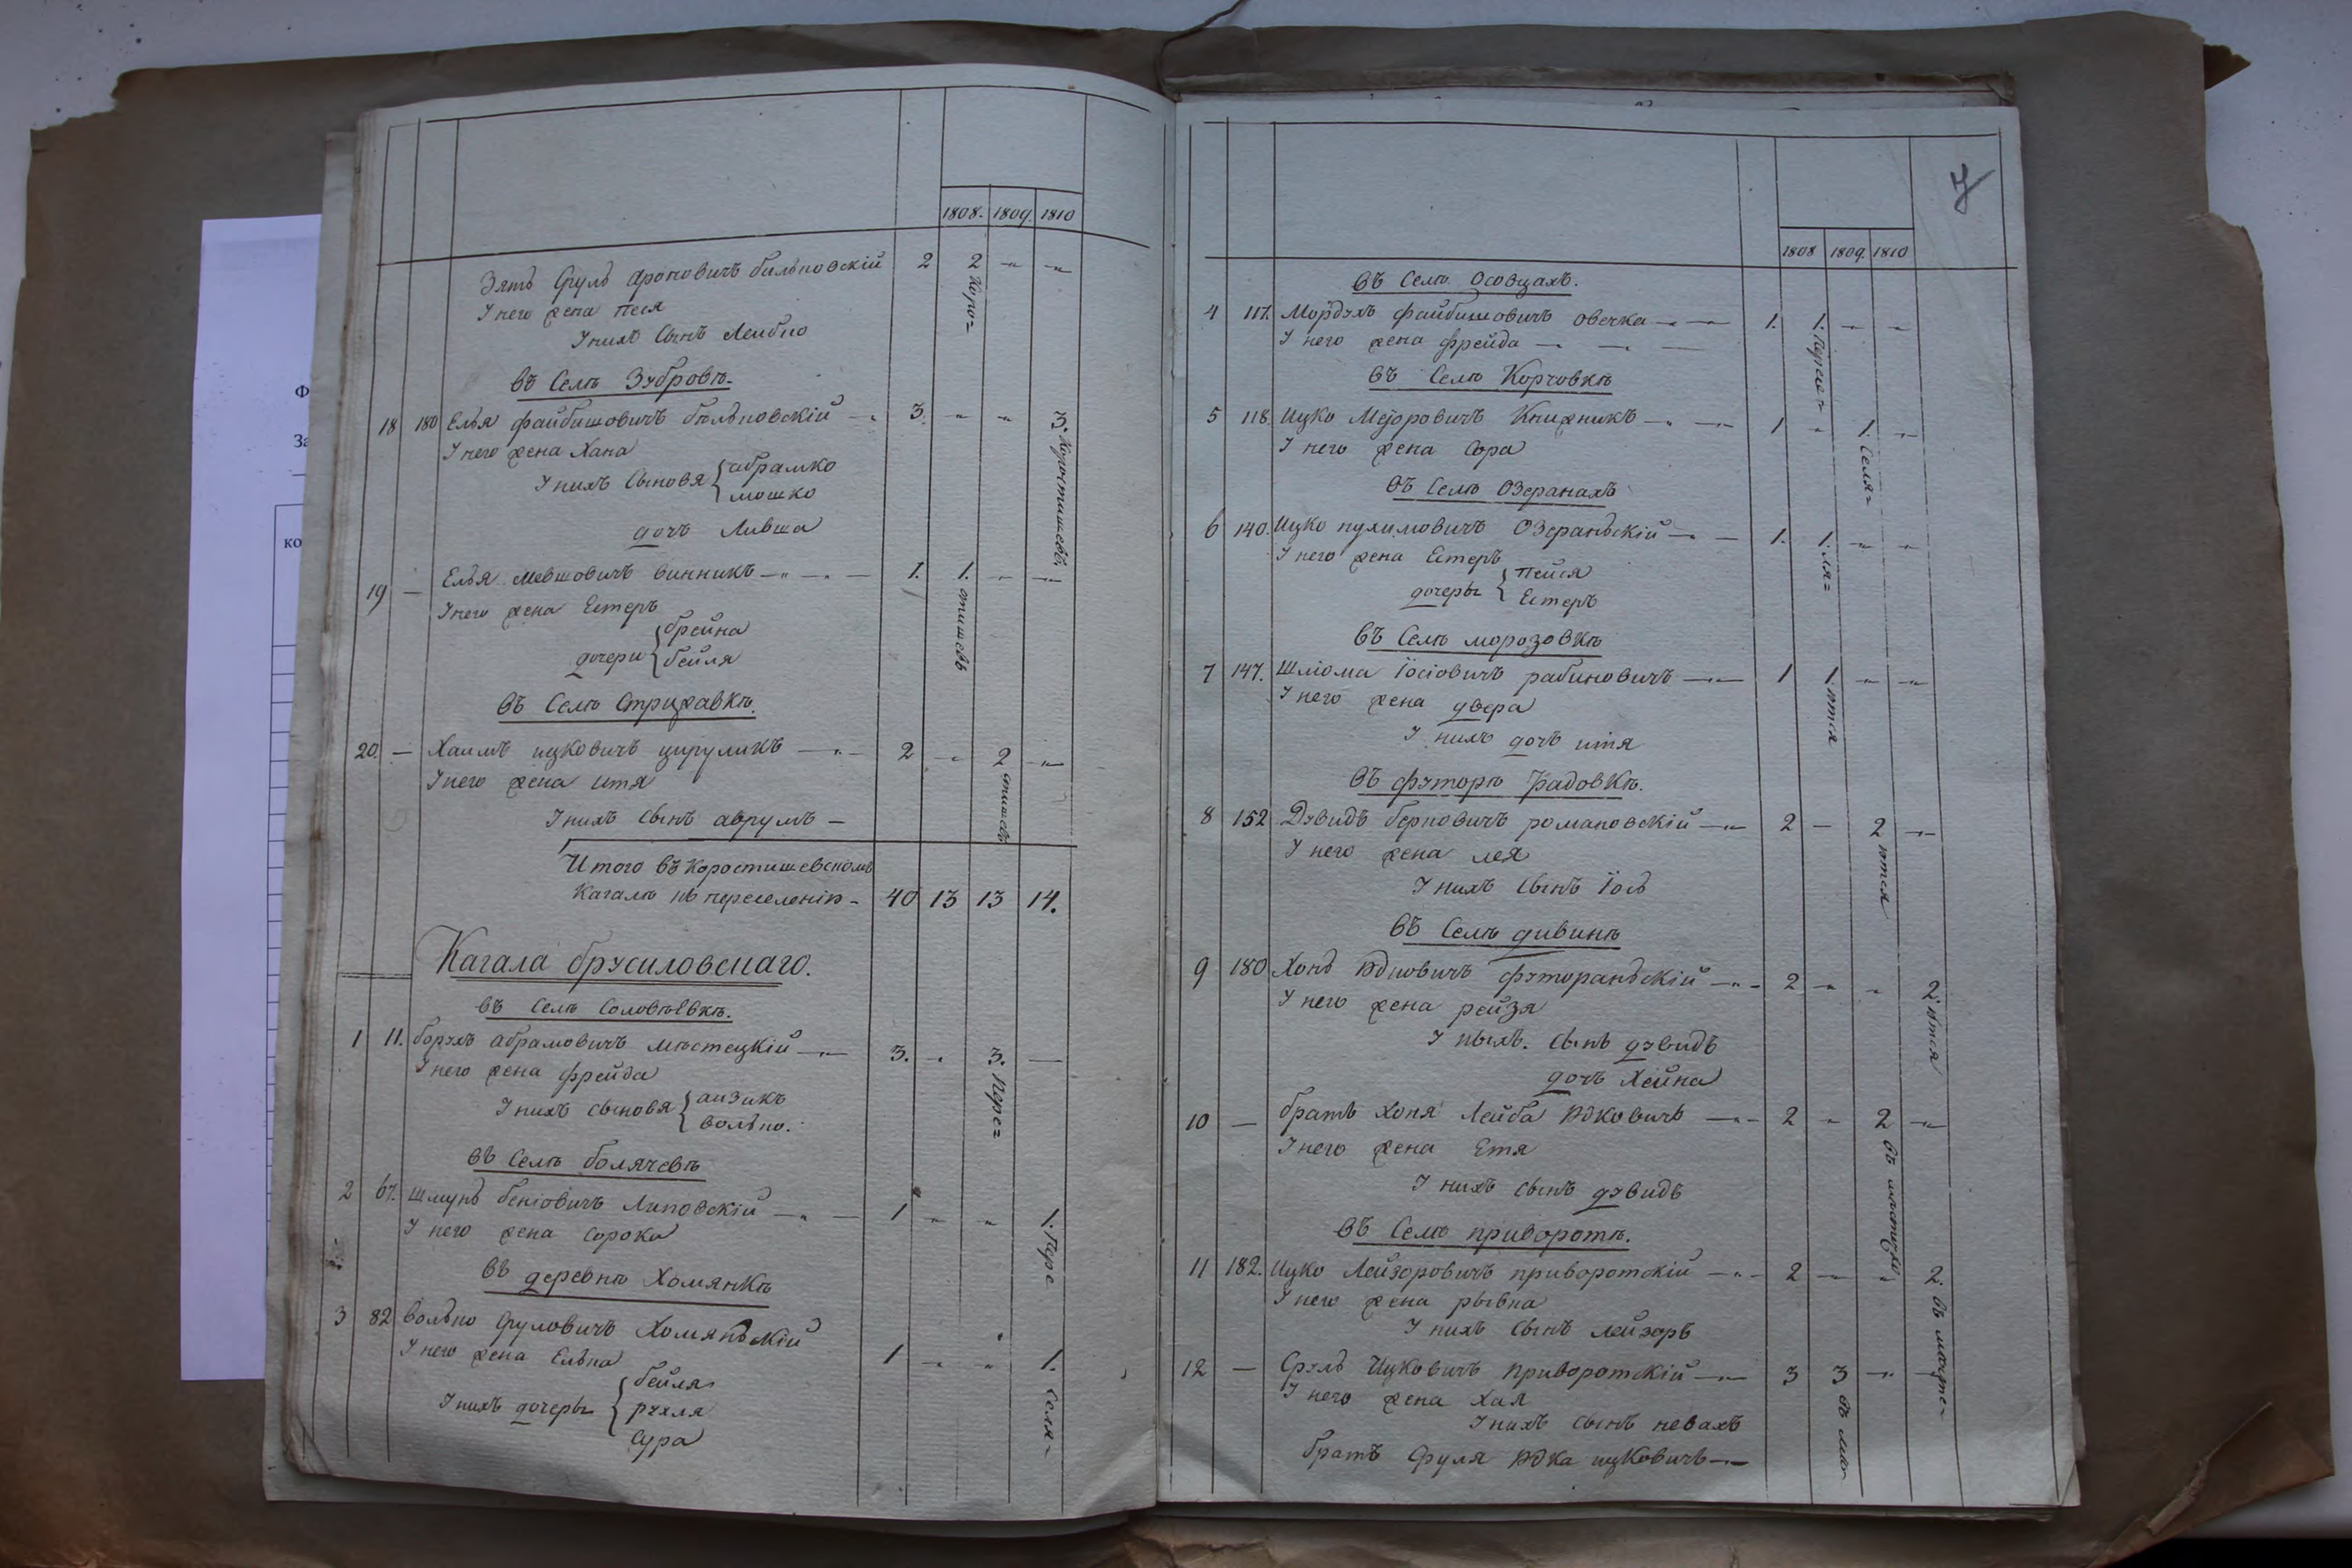 1808. 1809. 1810
Зять Сруль Ароновичъ бильповскій 2 2 -"- -"-
У него жена песя
У нихъ Сынъ Лейбно
Коро=
въ Селѣ Зубровѣ.
18 180 Елья файбишовичъ бѣльповскій 3. -"- -"- 3.
У него жена Хана
У нихъ Сыновя { абрамко
мошко
дочь Ливша
Коростишевъ
19 — Елья мевшовичъ винникъ 1. 1. -"- -"-
У него жена Естеръ
дочери { брейна
бейля
стишевъ
въ Селѣ Стрижавкѣ.
20. — Хаимъ ицковичъ цируликъ 2 -"- 2 -"-
У него жена итя
У нихъ Сынъ аврумъ —
стишевъ
Итого въ Коростишевскомъ
Кагалѣ къ переселенію - 40 13 13 14.
Кагала брусиловскаго.
въ Селѣ Соловьевкѣ.
1 11. борухъ абрамовичъ мѣстецкій 3. -"- 3. —
У него жена фрейда
У нихъ сыновя { аизикъ
вольно.
Пере=
въ Селѣ болячевѣ
2 67. шмунь беніовичъ Липовскій 1 -"- -"- 1.
У него жена сорока
Пере
въ деревнѣ Хомянкѣ
3 82 вольно Сруловичъ Хомяньскій 1 -"- -"- 1.
У него жена Ельна
У нихъ дочеры { бейля
рухля
Сура
Селя-
7
1808 1809. 1810
въ Селѣ Осовцахъ.
4 117. Мордухъ файбишовичъ овечка 1. 1. -"- -"-
У него жена фрейда
въ Селѣ Корчовкѣ
5 118. Ицко Мејоровичъ Книжникъ 1 -"- 1. -"-
У него жена Сора
Селя=
въ Селѣ Озеранахъ
6 140. Ицко нухимовичъ Озераньскій 1. 1. -"- -"-
У него жена Естеръ
дочеры { пейся
Естеръ
ля=
въ Селѣ морозовкѣ
7 147. Шліома іосіовичъ рабиновичъ 1 1. -"- -"-
У него жена двера
У нихъ дочь итя
ются
въ футорѣ Радовкѣ.
8 152 Дувидъ берковичъ романовскій 2 — 2 -"-
У него жена лея
У нихъ сынъ іось
ются
въ Селѣ дивинѣ
9 180 Хонь юдковичъ футораньскій 2 -"- -"- 2.
У него жена рейзя
У ныхъ. сынъ дувидъ
дочь Хейна
ются
10 — братъ хоня Лейба юдковичъ 2 -"- 2 -"-
У него жена Етя
У нихъ сынъ дувидъ
въ местцы
въ Селѣ приворотѣ.
11 182. Ицко Лейзоровичъ приворотскій 2 — -"- 2.
У него жена рывка
У нихъ сынъ лейзоръ
въ мѣсте-
12 — Сруль Ицковичъ приворотскій 3 3 -"- -"-
У него жена хая
У нихъ сынъ невахъ
братъ Сруля юдка ицковичъ
въ мес